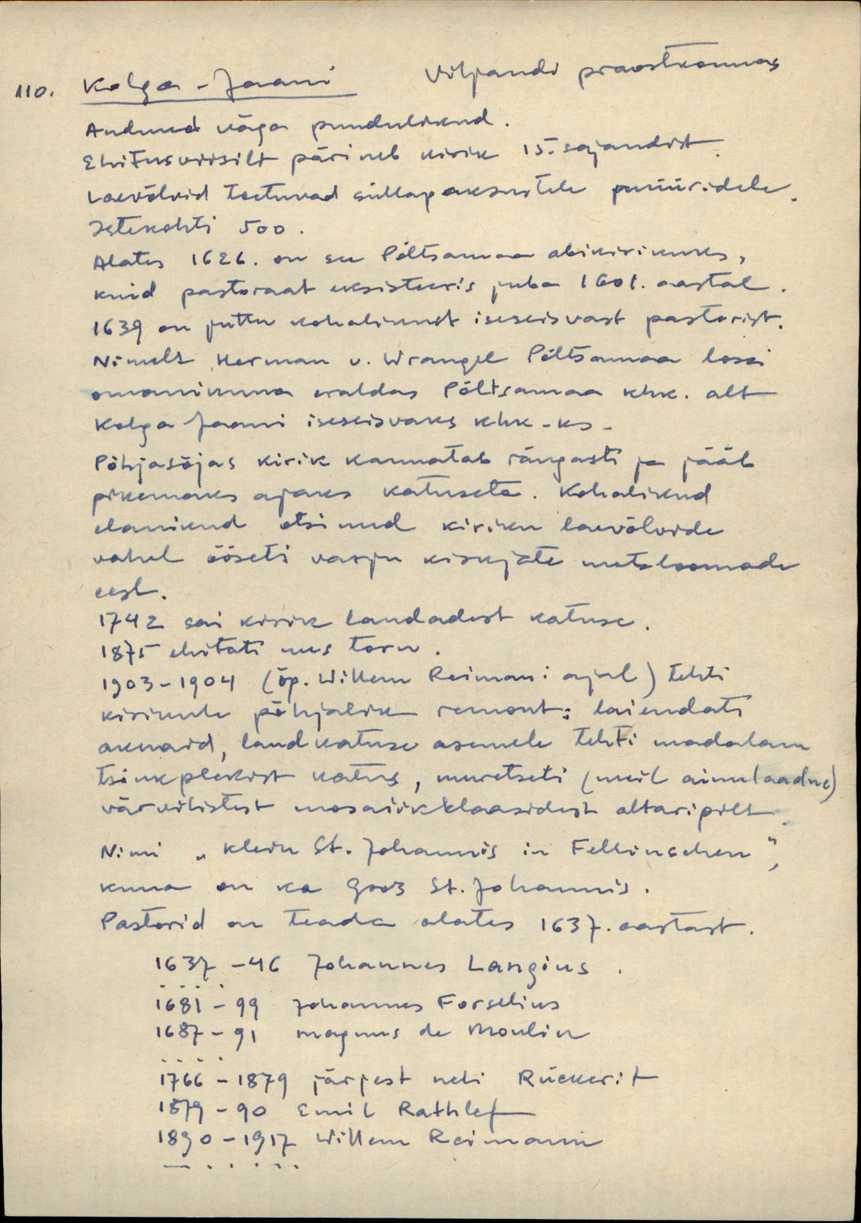 110. Kolga-Jaani Viljandi praostkonnas
Andmed väga puudulikud.
Ehitusviisilt pärineb kirik 15. sajandist.
Laevõlvid toetuvad süllapaksustele
Istekohti 500.
Alates 1626. on see Põltsamaa abikirikuks,
kuid pastoraat eksisteeris juba 1601. aastal.
1639 on juttu kohalikust iseseisvast pastorist.
Nimelt Herman v. Wrangel Põltsamaa lossi
omanikuna eraldas Põltsamaa khk. alt
Kolga Jaani iseseisvaks khk-ks.
Põhjasõjas kirik kannatab rängasti ja jääb
pikemaks ajaks katuseta. Kohalikud
elanikud otsinud kiriku laevõlvide
vahel ööseti varju kiskjate metsloomade
eest.
1742 sai kirik laudadest katuse.
1875 ehitati uus torn.
1903-1904 (õp. Willem Reimani ajal) tehti
kirikule põhjalik remont: laiendati
aknaid, laudkatuse asemele tehti madalam
tsinkplekist katus, muretseti (meil ainulaadne)
värvilistest mosaiikklaasidest altaripilt.
Nimi „Klein St. Johannis in Fellinschen",
kuna on ka Groß St. Johannis.
Pastorid on teada alates 1637. aastast.
1637-46 Johannes Langius.
. . . .
1681-99 Johannes Forselius
1687-91 Magnus de Moulin
. . . .
1766-1879 järjest neli Rückerit
1879-90 Emil Rathlef
1890-1917 Willem Reimann
— . . . . . .